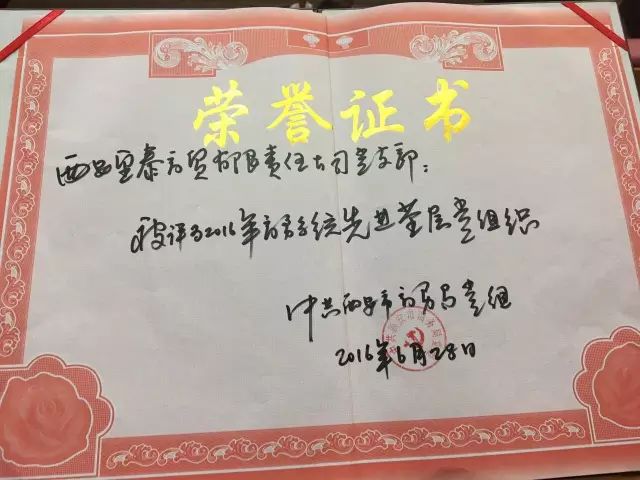 荣誉证书
西安泰商贸有限责任公司党支部：
被评为2016年商务系统先进基层党组织
中共西安市商务局党组
2016年6月28日